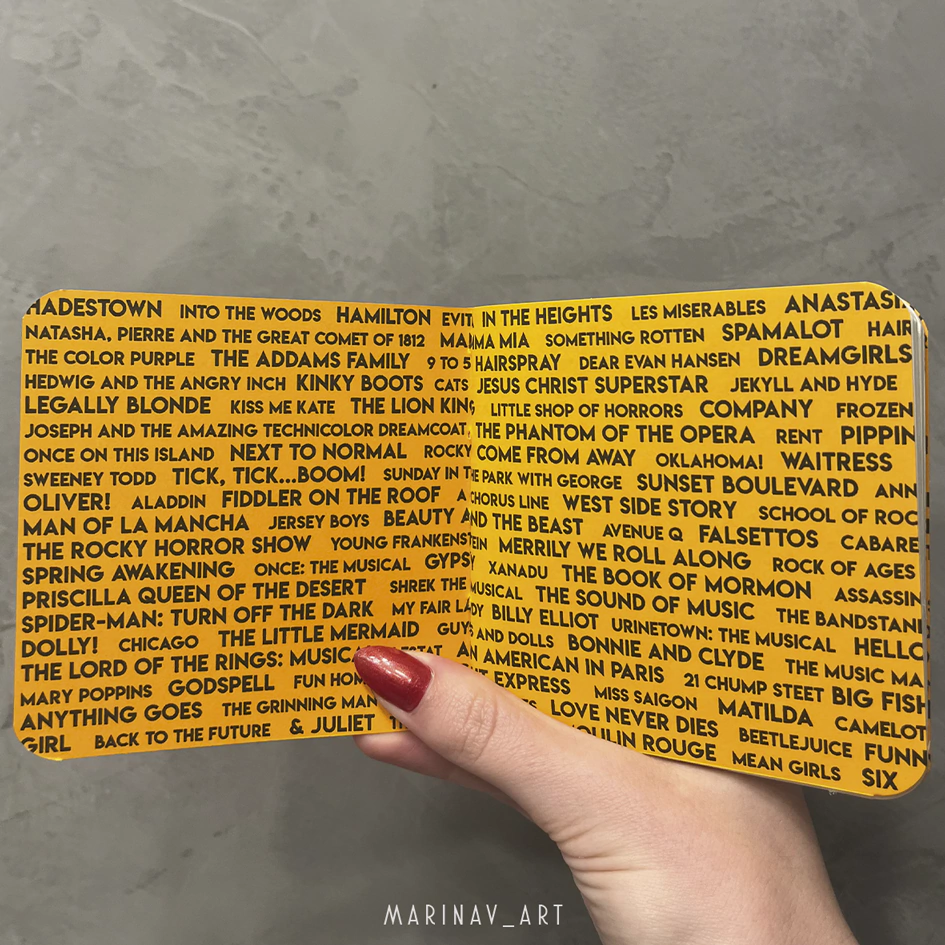 HADESTOWN INTO THE WOODS HAMILTON EVIT IN THE HEIGHTS LES MISERABLES ANASTASI
NATASHA, PIERRE AND THE GREAT COMET OF 1812 MAMMA MIA SOMETHING ROTTEN SPAMALOT HAIR
THE COLOR PURPLE THE ADDAMS FAMILY 9 TO 5 HAIRSPRAY DEAR EVAN HANSEN DREAMGIRLS
HEDWIG AND THE ANGRY INCH KINKY BOOTS CATS JESUS CHRIST SUPERSTAR JEKYLL AND HYDE
LEGALLY BLONDE KISS ME KATE THE LION KING LITTLE SHOP OF HORRORS COMPANY FROZEN
JOSEPH AND THE AMAZING TECHNICOLOR DREAMCOAT THE PHANTOM OF THE OPERA RENT PIPPIN
ONCE ON THIS ISLAND NEXT TO NORMAL ROCKY COME FROM AWAY OKLAHOMA! WAITRESS
SWEENEY TODD TICK, TICK...BOOM! SUNDAY IN THE PARK WITH GEORGE SUNSET BOULEVARD ANN
OLIVER! ALADDIN FIDDLER ON THE ROOF A CHORUS LINE WEST SIDE STORY SCHOOL OF ROC
MAN OF LA MANCHA JERSEY BOYS BEAUTY AND THE BEAST AVENUE Q FALSETTOS CABARE
THE ROCKY HORROR SHOW YOUNG FRANKENSTEIN MERRILY WE ROLL ALONG ROCK OF AGES
SPRING AWAKENING ONCE: THE MUSICAL GYPSY XANADU THE BOOK OF MORMON ASSASSIN
PRISCILLA QUEEN OF THE DESERT SHREK THE MUSICAL THE SOUND OF MUSIC THE BANDSTAN
SPIDER-MAN: TURN OFF THE DARK MY FAIR LADY BILLY ELLIOT URINETOWN: THE MUSICAL HELLO
DOLLY! CHICAGO THE LITTLE MERMAID GUYS AND DOLLS BONNIE AND CLYDE THE MUSIC MA
THE LORD OF THE RINGS: MUSIC AN AMERICAN IN PARIS 21 CHUMP STEET BIG FISH
MARY POPPINS GODSPELL FUN HOM EXPRESS MISS SAIGON MATILDA CAMELOT
ANYTHING GOES THE GRINNING MAN LOVE NEVER DIES BEETLEJUICE FUNN
GIRL BACK TO THE FUTURE & JULIET MOULIN ROUGE MEAN GIRLS SIX
MARINAV_ART